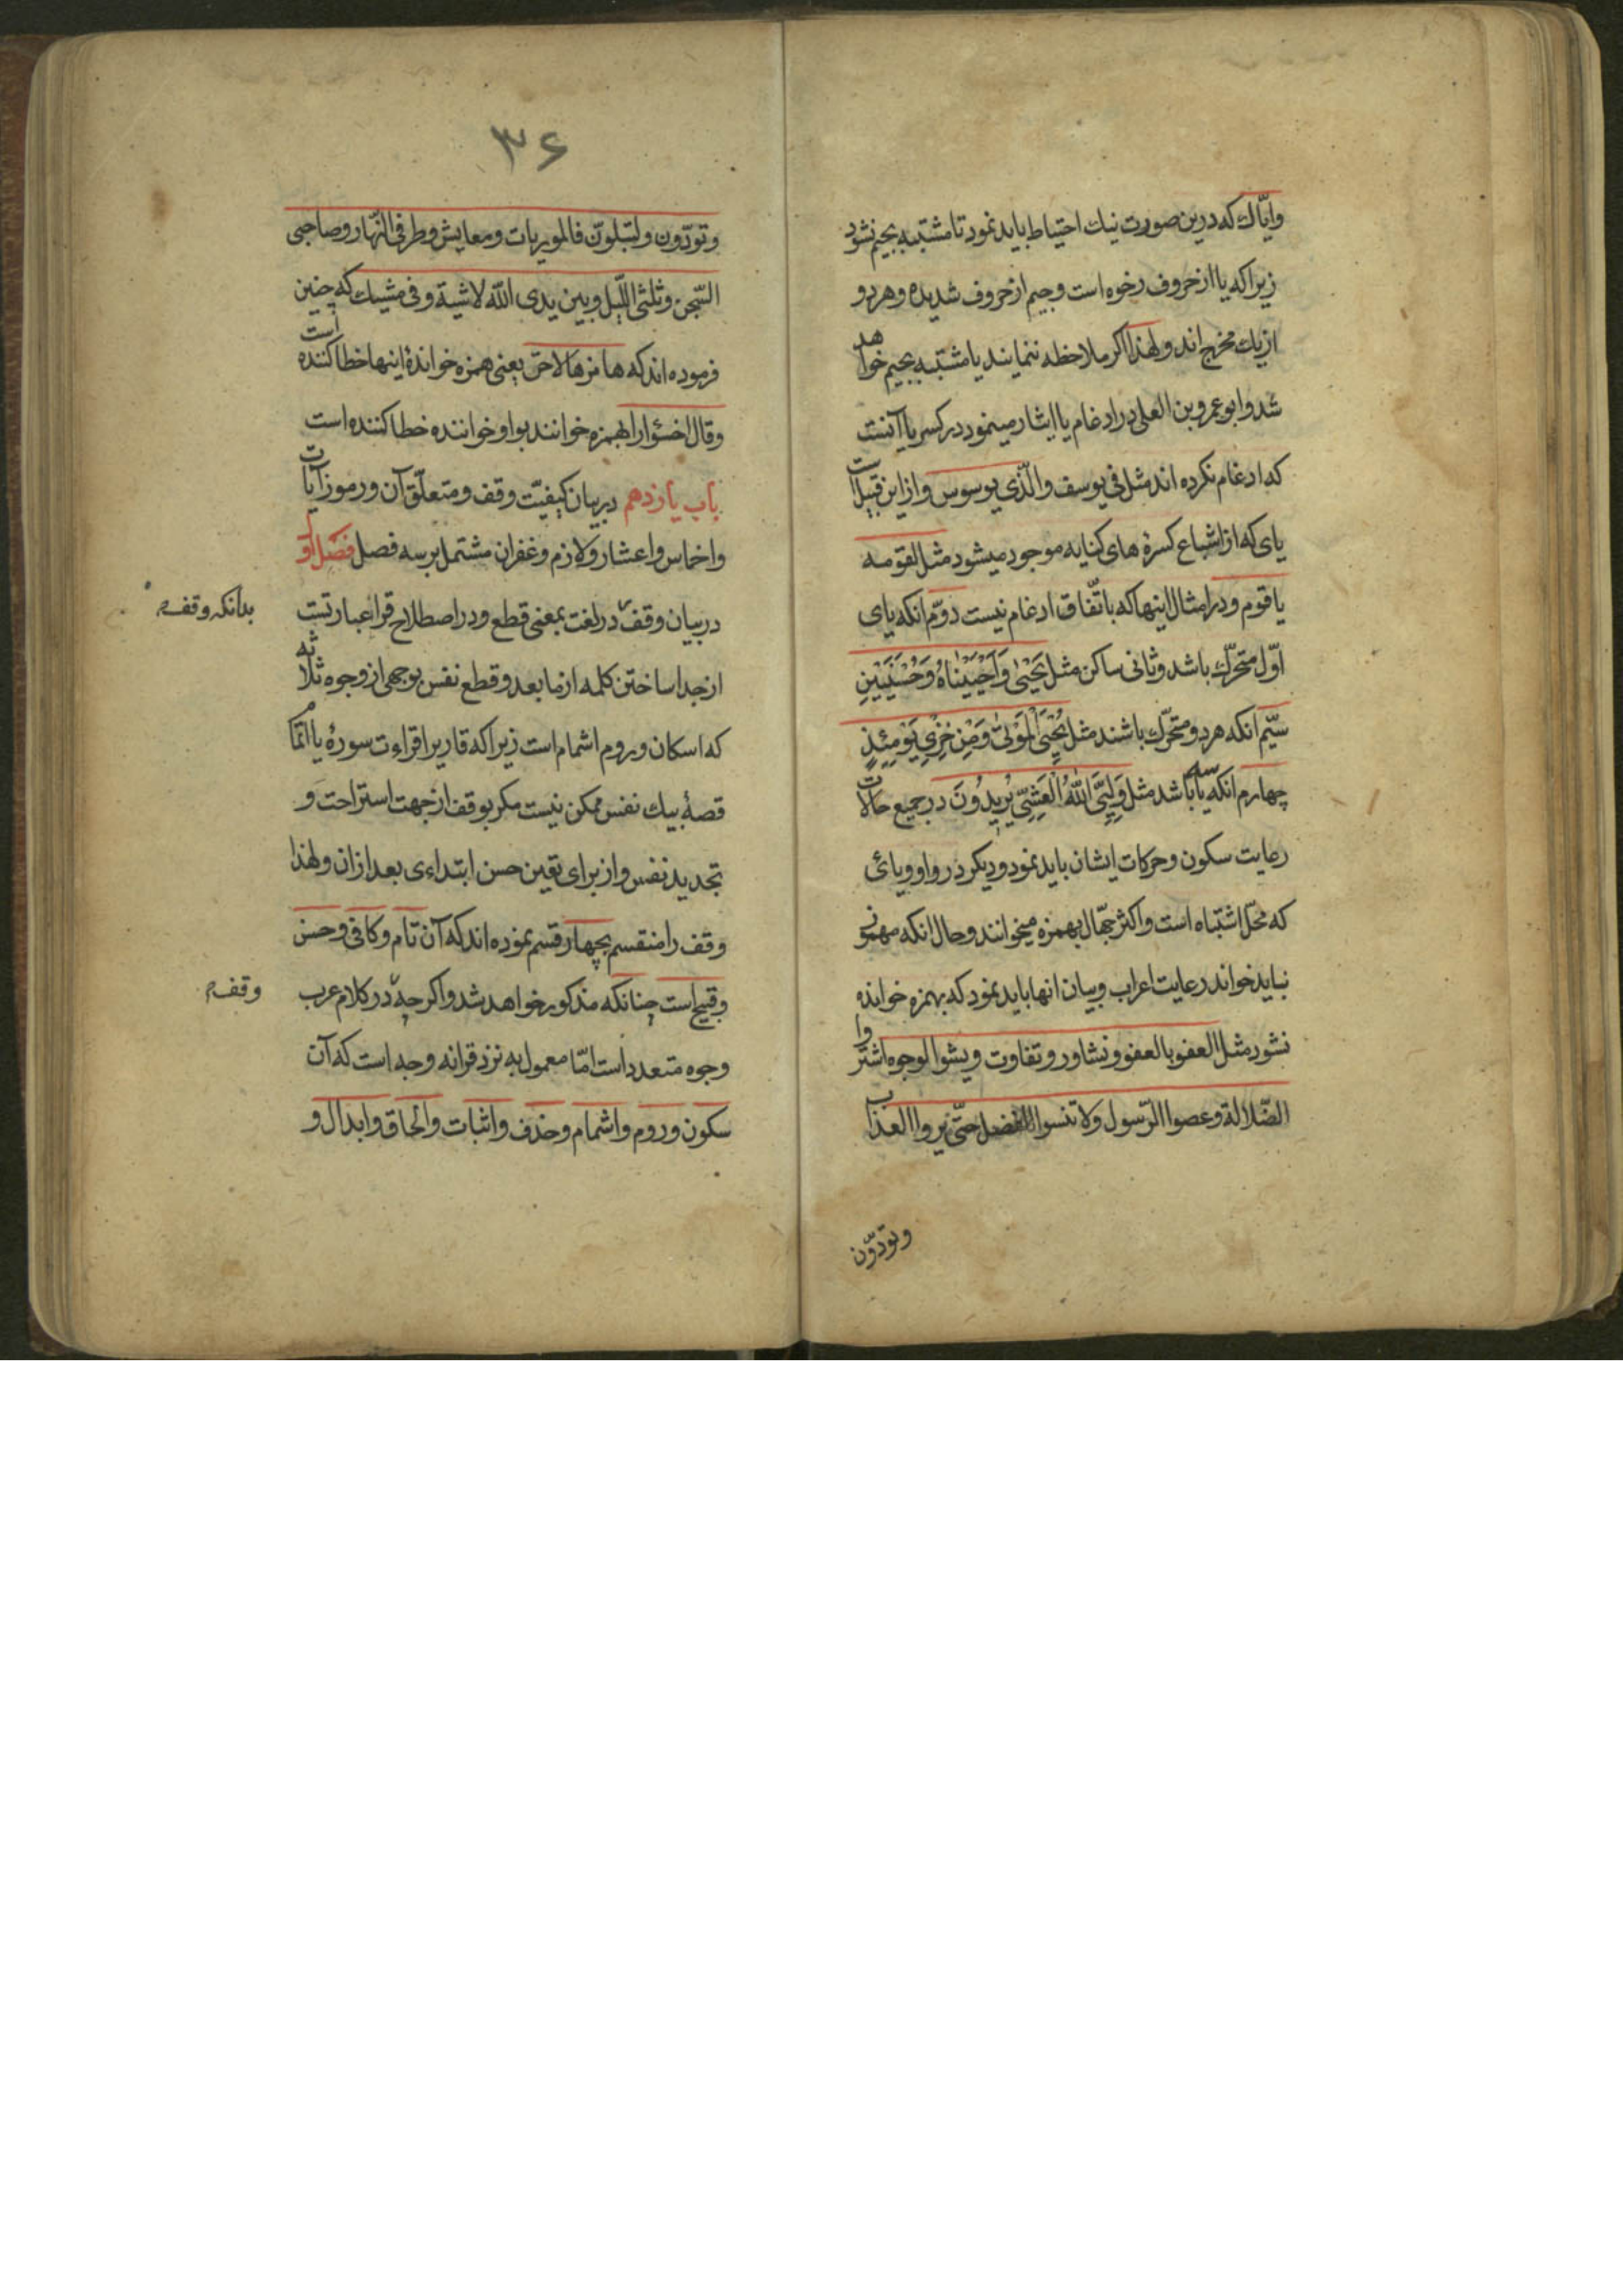 وایّاك که درین صورت نیك احتیاط باید نمود تا مشتبه بجیم نشود
زیرا که یا از حروف رخوه است و جیم از حروف شدیده و هر دو
از یك مخرج اند و لهذا اکر ملاحظه ننمایند یا مشتبه بجیم خواهد
شد و ابو عمرو بن العلی در ادغام یا ایثار مینمود در کسر یا آنست
که ادغام نکرده اند مثل فی یوسف والّذی یوسوس و از این قبیلست
یای که از اشباع کسرهٔ های کنایه موجود میشود مثل لقومه
یا قوم و در امثال اینها که باتّفاق ادغام نیست دوّم انکه یای
اوّل متحرّك باشد و ثانی ساکن مثل یَحْییٰ وَاَحْیَیْنَاهُ وَحُسْنَیَیْنِ
سیّم انکه هر دو متحرّك باشند مثل یُحْیِیَ الْمَوْتیٰ وَمِنْ خِزْیِ یَوْمِئِذٍ
چهارم انکه سه یا باشد مثل وَلِیِّیَ اللهُ الْعَشِیِّ یُرِیدُونَ در جمیع حالات
رعایت سکون و حرکات ایشان باید نمود و دیکر در واو و یائی
که محّل اشتباه است و اکثر جهّال بهمزه میخوانند و حال انکه مهموز
نباید خواند رعایت اعراب و بیان انها باید نمود که بهمزه خوانده
نشود مثل العفو بالعفو و تشاور و تفاوت و یشوا لوجوه اشتروا
الضّلالة وعصوا الرّسول ولا تنسوا الفضل حتّی یروا العذاب
وتودّون
۳۶
وتودّون ولتبلونّ فالموریات ومعایش وطرفی النّهار وصاحبی
السّجن وثلثی اللّیل وبین یدی الله لا شیة وفی مشیك که چنین
فرموده اند که هامزها لاحن یعنی همزه خوانندهٔ اینها خطا کننده است
وقال اخسؤا را بهمزه خوانند بواو خواننده خطا کننده است
باب یازدهم در بیان کیفیّت وقف و متعلّق آن و رموز آیات
و اخماس و اعشار و لازم و غفران مشتمل بر سه فصل فصل اول
در بیان وقف در لغت بمعنی قطع و در اصطلاح قرا عبارتست
بدانکه وقف
از جدا ساختن کلمه از ما بعد و قطع نفس بوجهی از وجوه ثلاثه
که اسکان و روم اشمام است زیرا که قاریرا قراءت سورهٔ یا اتمام
قصهٔ بیك نفس ممکن نیست مکر بوقف از جهت استراحت و
تجدید نفس و از برای تعین حسن ابتداءی بعد از ان و لهذا
وقف را منقسم بچهار قسم نموده اند که آن تام و کافی و حسن
و قبیح است چنانکه مذکور خواهد شد و اکر چه در کلام عرب
وقف
وجوه متعدد است امّا معمول به نزد قرا نه وجه است که آن
سکون و روم و اشمام و حذف و اثبات و الحاق و ابدال و